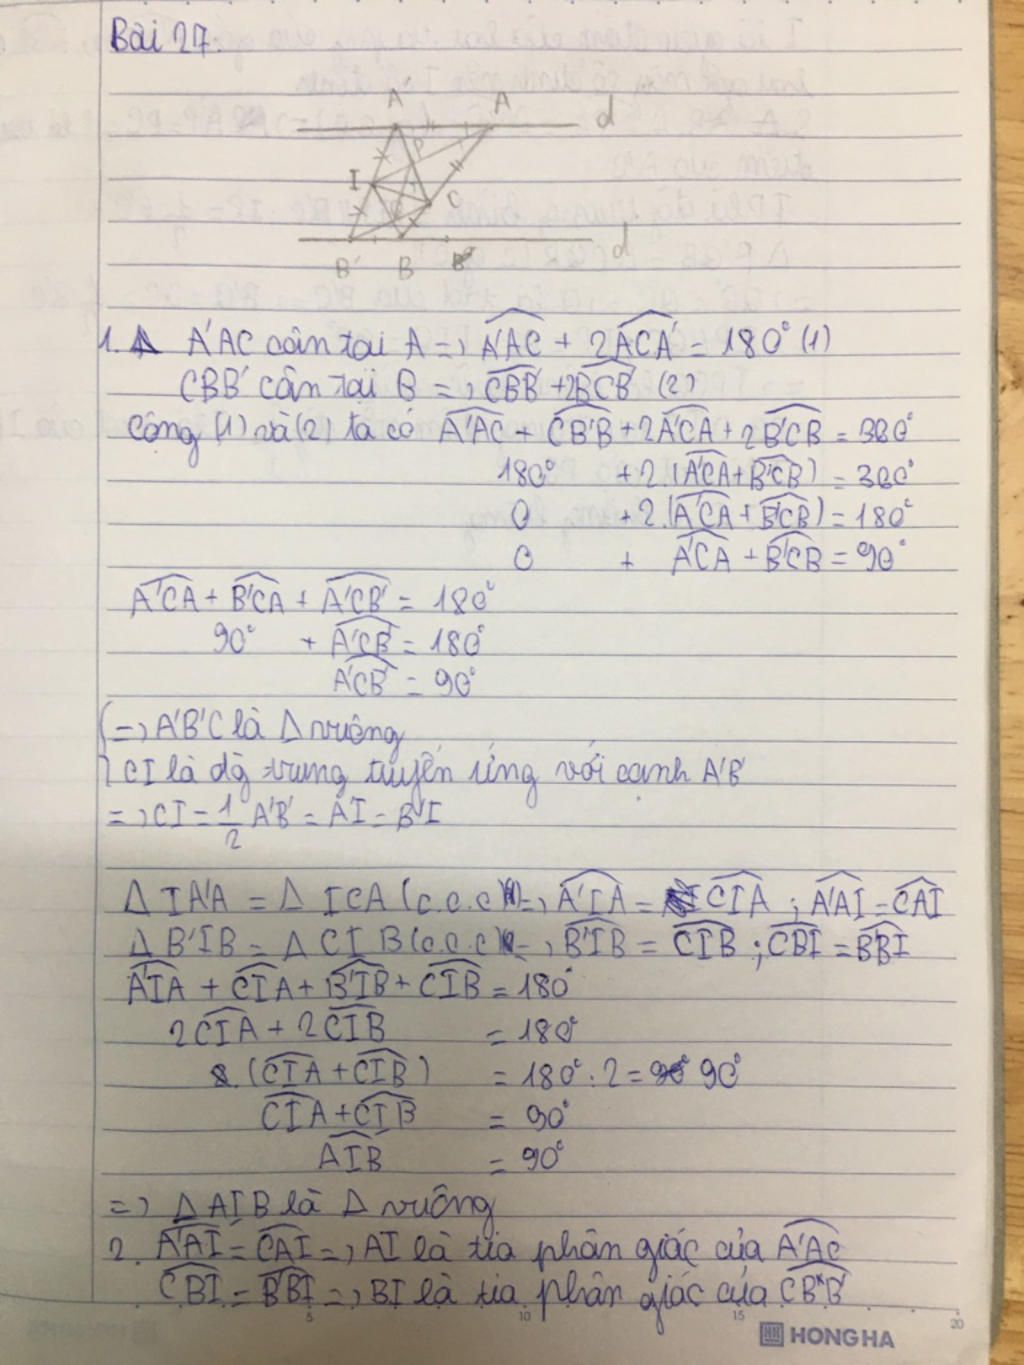 Bài 27.
A' A d
P
I C
B' B d
1. A'AC cân tại A => A'AC + 2ACA' = 180° (1)
CBB' cân tại B => CBB' + 2BCB' (2)
Cộng (1) và (2) ta có A'AC + CB'B + 2A'CA + 2B'CB = 360°
180° + 2.(A'CA + B'CB) = 360°
0 + 2.(A'CA + B'CB) = 180°
0 + A'CA + B'CB = 90°
A'CA + B'CA + A'CB' = 180°
90° + A'CB' = 180°
A'CB' = 90°
=> A'B'C là Δ vuông
CI là đg trung tuyến ứng với cạnh A'B'
=> CI = 1/2 A'B' = A'I = B'I
Δ IA'A = Δ ICA (c.c.c) => A'IA = CIA ; A'AI = CAI
Δ B'IB = Δ CIB (c.c.c) => B'IB = CIB ; CBI = B'BI
A'IA + CIA + B'IB + CIB = 180°
2CIA + 2CIB = 180°
(CIA + CIB) = 180° : 2 = 90°
CIA + CIB = 90°
AIB = 90°
=> Δ AIB là Δ vuông
2. A'AI = CAI => AI là tia phân giác của A'AC
CBI = B'BI => BI là tia phân giác của CB'B
5 10 15 20
HONG HA